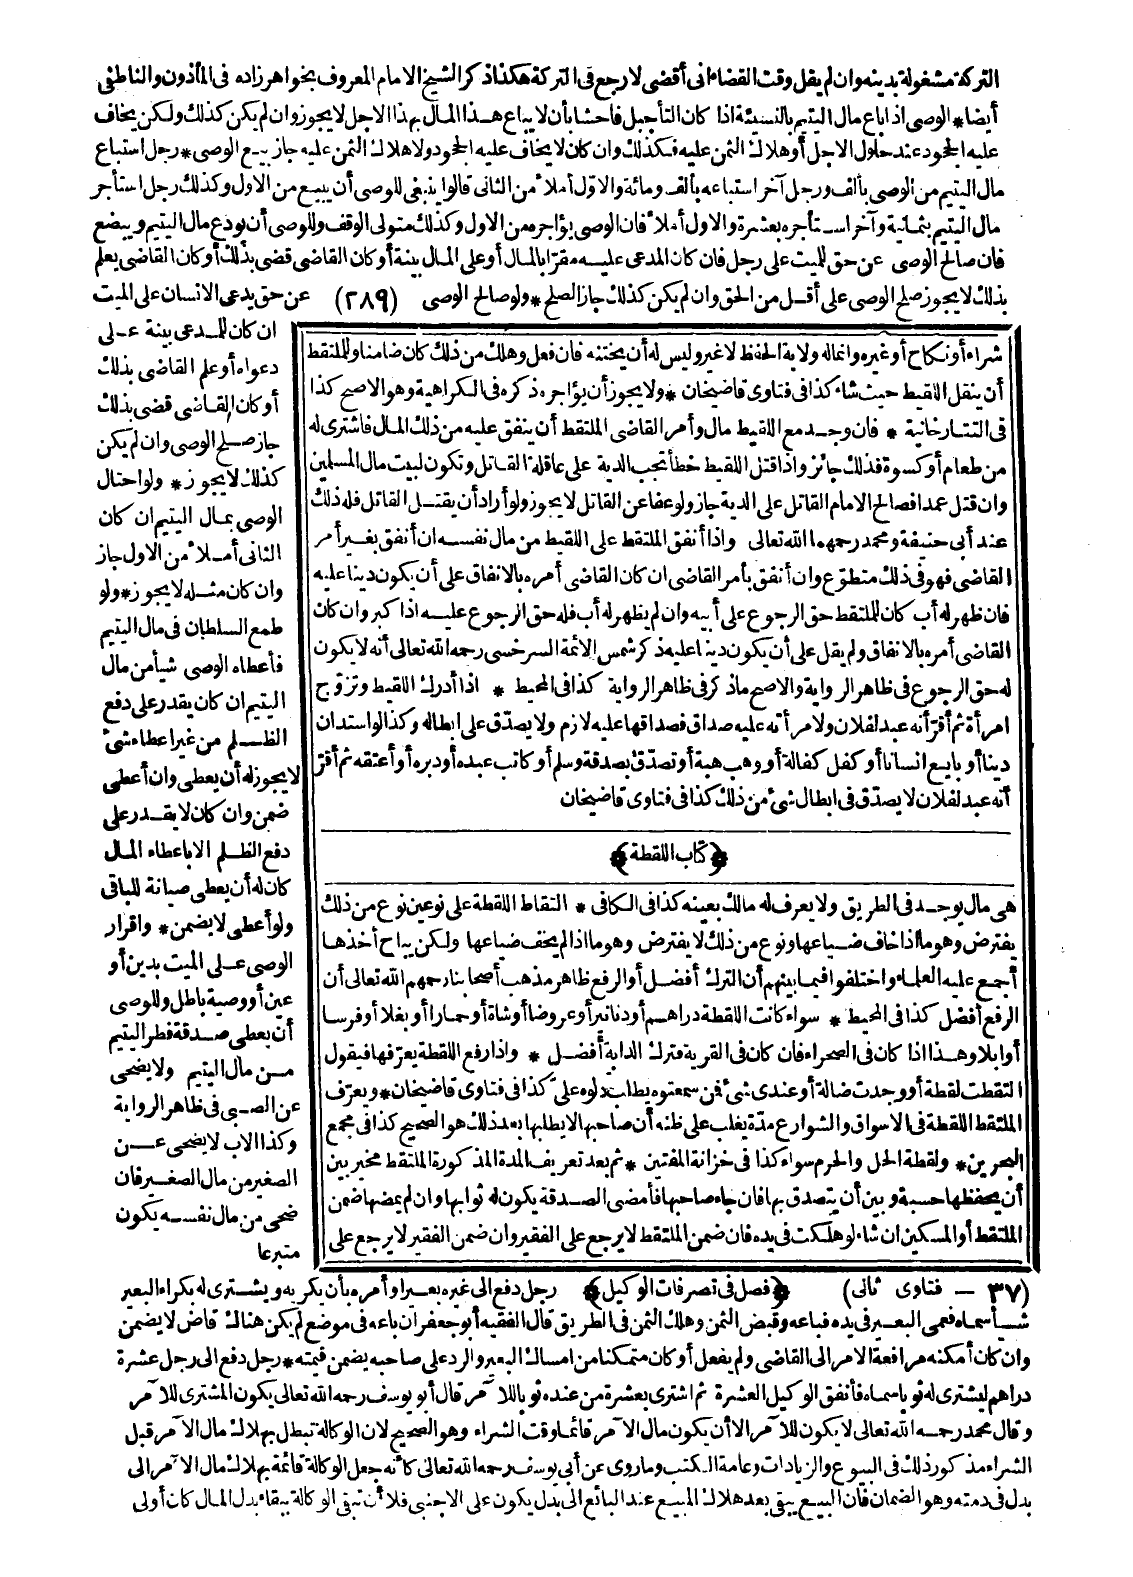 التركة مشغولة بدينه وان لم يقل وقت القضاء انى أقضى لارجع فى التركة هكذا ذكر الشيخ الامام المعروف بخواهرزاده فى المأذون والناطفى
أيضا * الوصى اذا باع مال اليتيم بالنسيئة اذا كان التأجيل فاحشا بأن لا يباع هذا المال بهذا الاجل لا يجوز وان لم يكن كذلك ولكن يخاف
عليه الجحود عند حلول الاجل أو هلاك الثمن عليه فكذلك وان كان لا يخاف عليه الجحود ولا هلاك الثمن عليه جاز بيع الوصى * رجل استباع
مال اليتيم من الوصى بألف ورجل آخر استباعه بألف ومائة والاول أملأ من الثانى قالوا ينبغى للوصى أن يبيع من الاول وكذلك رجل استأجر
مال اليتيم بثمانية وآخر استأجره بعشرة والاول أملأ فان الوصى يؤاجره من الاول وكذلك متولى الوقف وللوصى أن يودع مال اليتيم ويبضع
فان صالح الوصى عن حق للميت على رجل فان كان المدعى عليه مقرا بالمال أو على المال بينة أو كان القاضى قضى بذلك أو كان القاضى يعلم
بذلك لا يجوز صلح الوصى على أقل من الحق وان لم يكن كذلك جاز الصلح * ولو صالح الوصى (٢٨٩) عن حق يدعى الانسان على الميت
ان كان للمدعى بينة على
دعواه أو علم القاضى بذلك
أو كان القاضى قضى بذلك
جاز صلح الوصى وان لم يكن
كذلك لا يجوز * ولو احتال
الوصى بمال اليتيم ان كان
الثانى أملأ من الاول جاز
وان كان مثله لا يجوز * ولو
طمع السلطان فى مال اليتيم
فأعطاه الوصى شيأ من مال
اليتيم ان كان يقدر على دفع
الظلم من غير اعطاء شئ
لا يجوز له أن يعطى وان أعطى
ضمن وان كان لا يقدر على
دفع الظلم الا باعطاء المال
كان له أن يعطى صيانة للباقى
ولو أعطى لا يضمن * واقرار
الوصى على الميت بدين أو
عين أو وصية باطل وللوصى
أن يعطى صدقة فطر اليتيم
من مال اليتيم ولا يضحى
عن الصبى فى ظاهر الرواية
وكذا الاب لا يضحى عن
الصغير من مال الصغير فان
ضحى من مال نفسه يكون
متبرعا
شراء أو نكاح أو غيره وانما له ولاية الحفظ لا غير وليس له أن يختنه فان فعل وهلك من ذلك كان ضامنا وللملتقط
أن ينقل اللقيط حيث شاء كذا فى فتاوى قاضيخان * ولا يجوز أن يؤاجره ذكره فى الكراهية وهو الاصح كذا
فى التتارخانية * فان وجد مع اللقيط مال وأمر القاضى الملتقط أن ينفق عليه من ذلك المال فاشترى له
من طعام أو كسوة فذلك جائز واذا قتل اللقيط خطأ تجب الدية على عاقلة القاتل وتكون لبيت مال المسلمين
وان قتل عمدا فصالح الامام القاتل على الدية جاز ولو عفا عن القاتل لا يجوز ولو أراد أن يقتل القاتل فله ذلك
عند أبى حنيفة ومحمد رحمهما الله تعالى واذا أنفق الملتقط على اللقيط من مال نفسه ان أنفق بغير أمر
القاضى فهو فى ذلك متطوع وان أنفق بأمر القاضى ان كان القاضى أمره بالانفاق على أن يكون دينا عليه
فان ظهر له أب كان للملتقط حق الرجوع على أبيه وان لم يظهر له أب فله حق الرجوع عليه اذا كبر وان كان
القاضى أمره بالانفاق ولم يقل على أن يكون دينا عليه ذكر شمس الائمة السرخسى رحمه الله تعالى أنه لا يكون
له حق الرجوع فى ظاهر الرواية والاصح ما ذكر فى ظاهر الرواية كذا فى المحيط * اذا أدرك اللقيط وتزوج
امرأة ثم أقر أنه عبد لفلان ولامرأته عليه صداق فصداقها عليه لازم ولا يصدق على ابطاله وكذا لو استدان
دينا أو بايع انسانا أو كفل كفالة أو وهب هبة أو تصدق بصدقة وسلم أو كاتب عبده أو دبره أو أعتقه ثم أقر
أنه عبد لفلان لا يصدق فى ابطال شئ من ذلك كذا فى فتاوى قاضيخان
﴿كتاب اللقطة﴾
هى مال يوجد فى الطريق ولا يعرف له مالك بعينه كذا فى الكافى * التقاط اللقطة على نوعين نوع من ذلك
يفترض وهو ما اذا خاف ضياعها ونوع من ذلك لا يفترض وهو ما اذا لم يخف ضياعها ولكن يباح أخذها
أجمع عليه العلماء واختلفوا فيما بينهم أن الترك أفضل أو الرفع ظاهر مذهب أصحابنا رحمهم الله تعالى أن
الرفع أفضل كذا فى المحيط * سواء كانت اللقطة دراهم أو دنانير أو عروضا أو شاة أو حمارا أو بغلا أو فرسا
أو ابلا وهذا اذا كان فى الصحراء فان كان فى القرية فترك الدابة أفضل * واذا رفع اللقطة يعرفها فيقول
التقطت لقطة أو وجدت ضالة أو عندى شئ فمن سمعتموه يطلب دلوه على كذا فى فتاوى قاضيخان * ويعرف
الملتقط اللقطة فى الاسواق والشوارع مدة يغلب على ظنه أن صاحبها لا يطلبها بعد ذلك هو الصحيح كذا فى مجمع
البحرين * ولقطة الحل والحرم سواء كذا فى خزانة المفتين * ثم بعد تعريف المدة المذكورة الملتقط مخير بين
أن يحفظها حسبة وبين أن يتصدق بها فان جاء صاحبها فأمضى الصدقة يكون له ثوابها وان لم يمضها ضمن
الملتقط أو المسكين ان شاء لو هلكت فى يده فان ضمن الملتقط لا يرجع على الفقير وان ضمن الفقير لا يرجع على
(٣٧ – فتاوى ثانى) ﴿فصل فى تصرفات الوكيل﴾ رجل دفع الى غيره بعيرا وأمره بأن يكريه ويشترى له بكراء البعير
شيأ سماه فعمى البعير فى يده فباعه وقبض الثمن وهلك الثمن فى الطريق قال الفقيه أبو جعفر ان باعه فى موضع لم يكن هناك قاض لا يضمن
وان كان أمكنه مرافعة الامر الى القاضى ولم يفعل أو كان متمكنا من امساك البعير والرد على صاحبه يضمن قيمته * رجل دفع الى رجل عشرة
دراهم ليشترى له ثوبا سماه فأنفق الوكيل العشرة ثم اشترى بعشرة من عنده ثوبا للآمر قال أبو يوسف رحمه الله تعالى يكون المشترى للآمر
وقال محمد رحمه الله تعالى لا يكون للآمر الا أن يكون مال الآمر قائما وقت الشراء وهو الصحيح لان الوكالة تبطل بهلاك مال الآمر قبل
الشراء مذكور ذلك فى البيوع والزيادات وعامة الكتب وما روى عن أبى يوسف رحمه الله تعالى كأنه جعل الوكالة قائمة بهلاك مال الآمر الى
بدل فى ذمته وهو الضمان فان البيع يبقى بعد هلاك المبيع عند البائع الى بدل يكون على الاجنبى فلأن تبقى الوكالة ببقاء بدل المال كان أولى